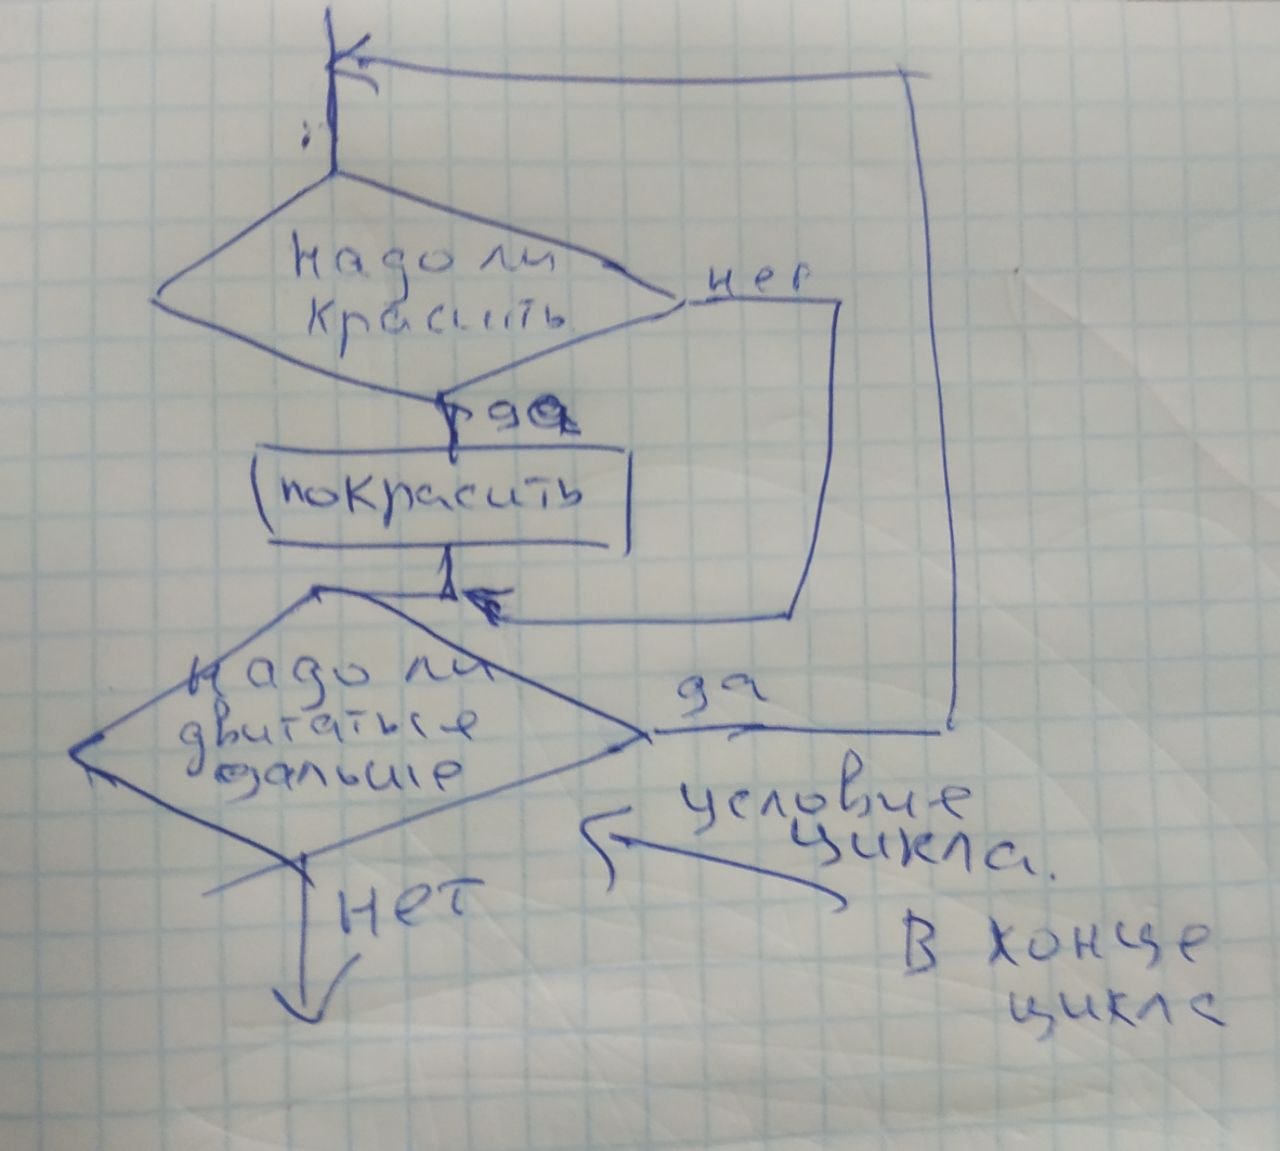 Надо ли
красить
нет
да
покрасить
надо ли
двигаться
дальше
да
условие
цикла.
нет
В конце
цикла